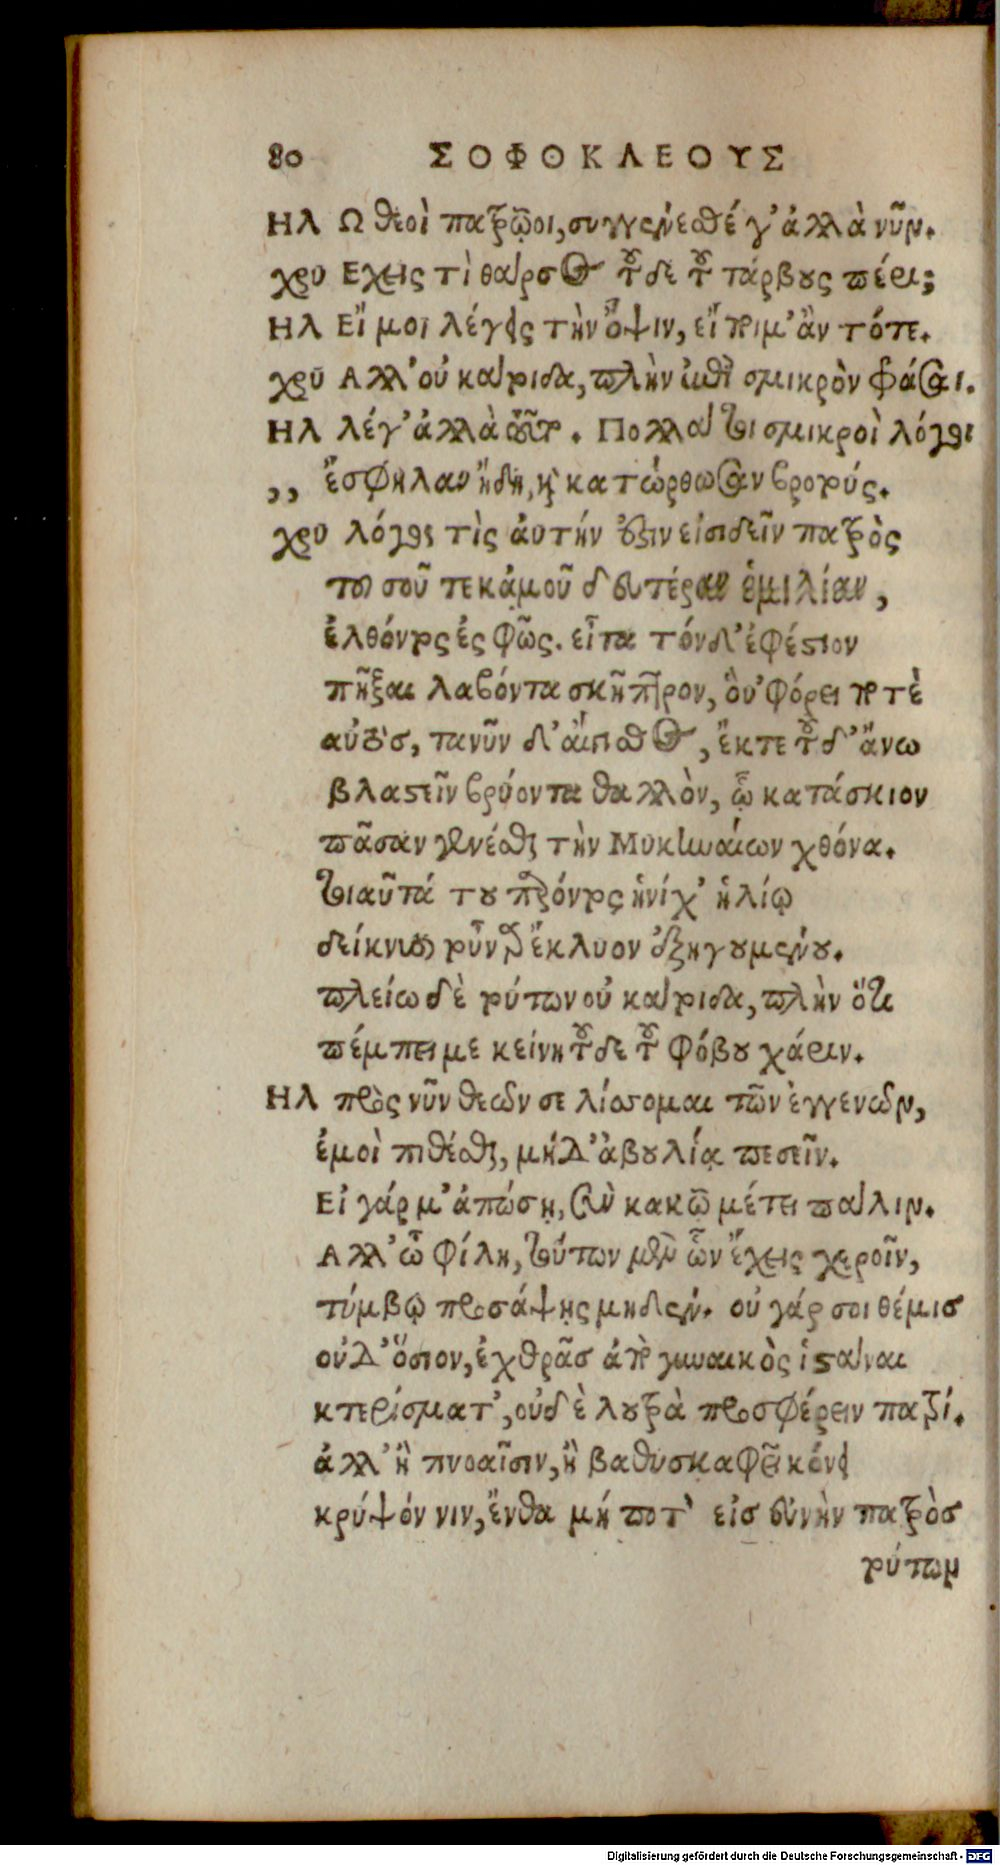 80 ΣΟΦΟΚΛΕΟΥΣ
ΗΛ Ω θεοὶ πατρῷοι, συγγένεσθέ γ' ἀλλὰ νῦν.
χρυ Εχεις τὶ θάρσος τοῦδε τοῦ τάρβους πέρι;
ΗΛ Εἴ μοι λέγεις τὴν ὄψιν, εἴποιμ' ἂν τότε.
χρυ Αλλ' οὐ κάτοιδα, πλὴν ἐπὶ σμικρὸν φράσαι.
ΗΛ λέγ' ἀλλὰ τοῦτο. Πολλά τοι σμικροὶ λόγοι
,, ἔσφηλαν ἤδη, καὶ κατώρθωσαν βροτούς.
χρυ λόγος τὶς ἀυτήν ἐστιν εἰσιδεῖν πατρὸς
του σοῦ τε κἀμοῦ δευτέραν ὁμιλίαν,
ἐλθόντος ἐς φῶς. εἶτα τόνδ' ἐφέστιον
πῆξαι λαβόντα σκῆπτρον, οὑφόρει ποτὲ
αὐτὸς, τανῦν δ' αἴγισθος, ἔκ τε τοῦδ' ἄνω
βλαστεῖν βρύοντα θαλλὸν, ᾧ κατάσκιον
πᾶσαν γενέσθαι τὴν Μυκηναίων χθόνα.
τοιαῦτά του παρόντος ἡνίχ' ἡλίῳ
δείκνυσι τοὖναρ ἔκλυον ἐξηγουμένου.
πλείω δὲ τούτων οὐ κάτοιδα, πλὴν ὅτι
πέμπει με κείνη τοῦδε τοῦ φόβου χάριν.
ΗΛ πρὸς νῦν θεῶν σε λίσσομαι τῶν ἐγγενῶν,
ἐμοὶ πιθέσθαι, μήδ' ἀβουλίᾳ πεσεῖν.
Εἰ γάρ μ' ἀπώσῃ, σὺν κακῷ μέτει πάλιν.
Αλλ' ὦ φίλη, τούτων μὲν ὧν ἔχεις χεροῖν,
τύμβῳ προσάψῃς μηδέν. οὐ γάρ σοι θέμισ
οὐδ' ὅσιον, ἐχθρᾶσ ἀπὸ γυναικὸς ἱστάναι
κτερίσματ', οὐδὲ λουτρὰ προσφέρειν πατρί.
ἀλλ' ἢ πνοαῖσιν, ἢ βαθυσκαφεῖ κόνει
κρύψόν νιν, ἔνθα μή ποτ' εἰσ εὐνὴν πατρὸσ
τούτων
Digitalisierung gefördert durch die Deutsche Forschungsgemeinschaft - DFG